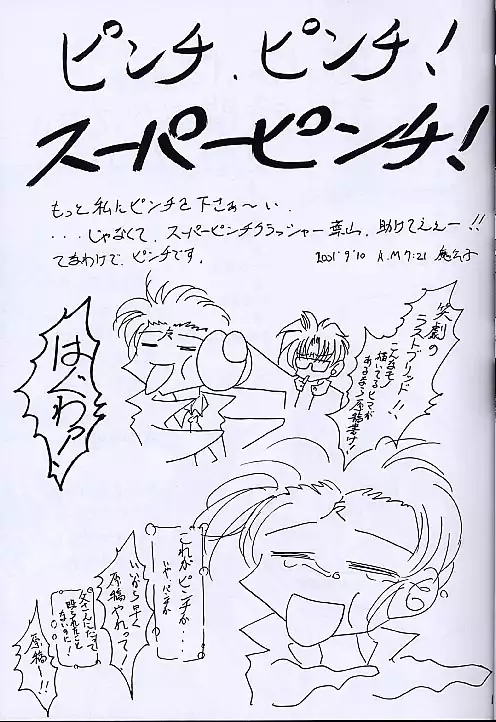 ピンチ、ピンチ!
スーパーピンチ!
もっと私にピンチを下さぁ〜い、
...じゃなくて、スーパーピンチクラッシャー葉山、助けてえぇー!!
てなわけで、ピンチです。
2001'9'10 A.M7:21
笑劇の
ラストブリッド
!!
こんなモ
描いてるヒマが
あるなら原稿書け!!
はぐわァッ
これがピンチか・・・
いや、パンチか
いいから早く
原稿やれって!
父さんにだって
殴られたこと
ないのに!
原稿ー!!